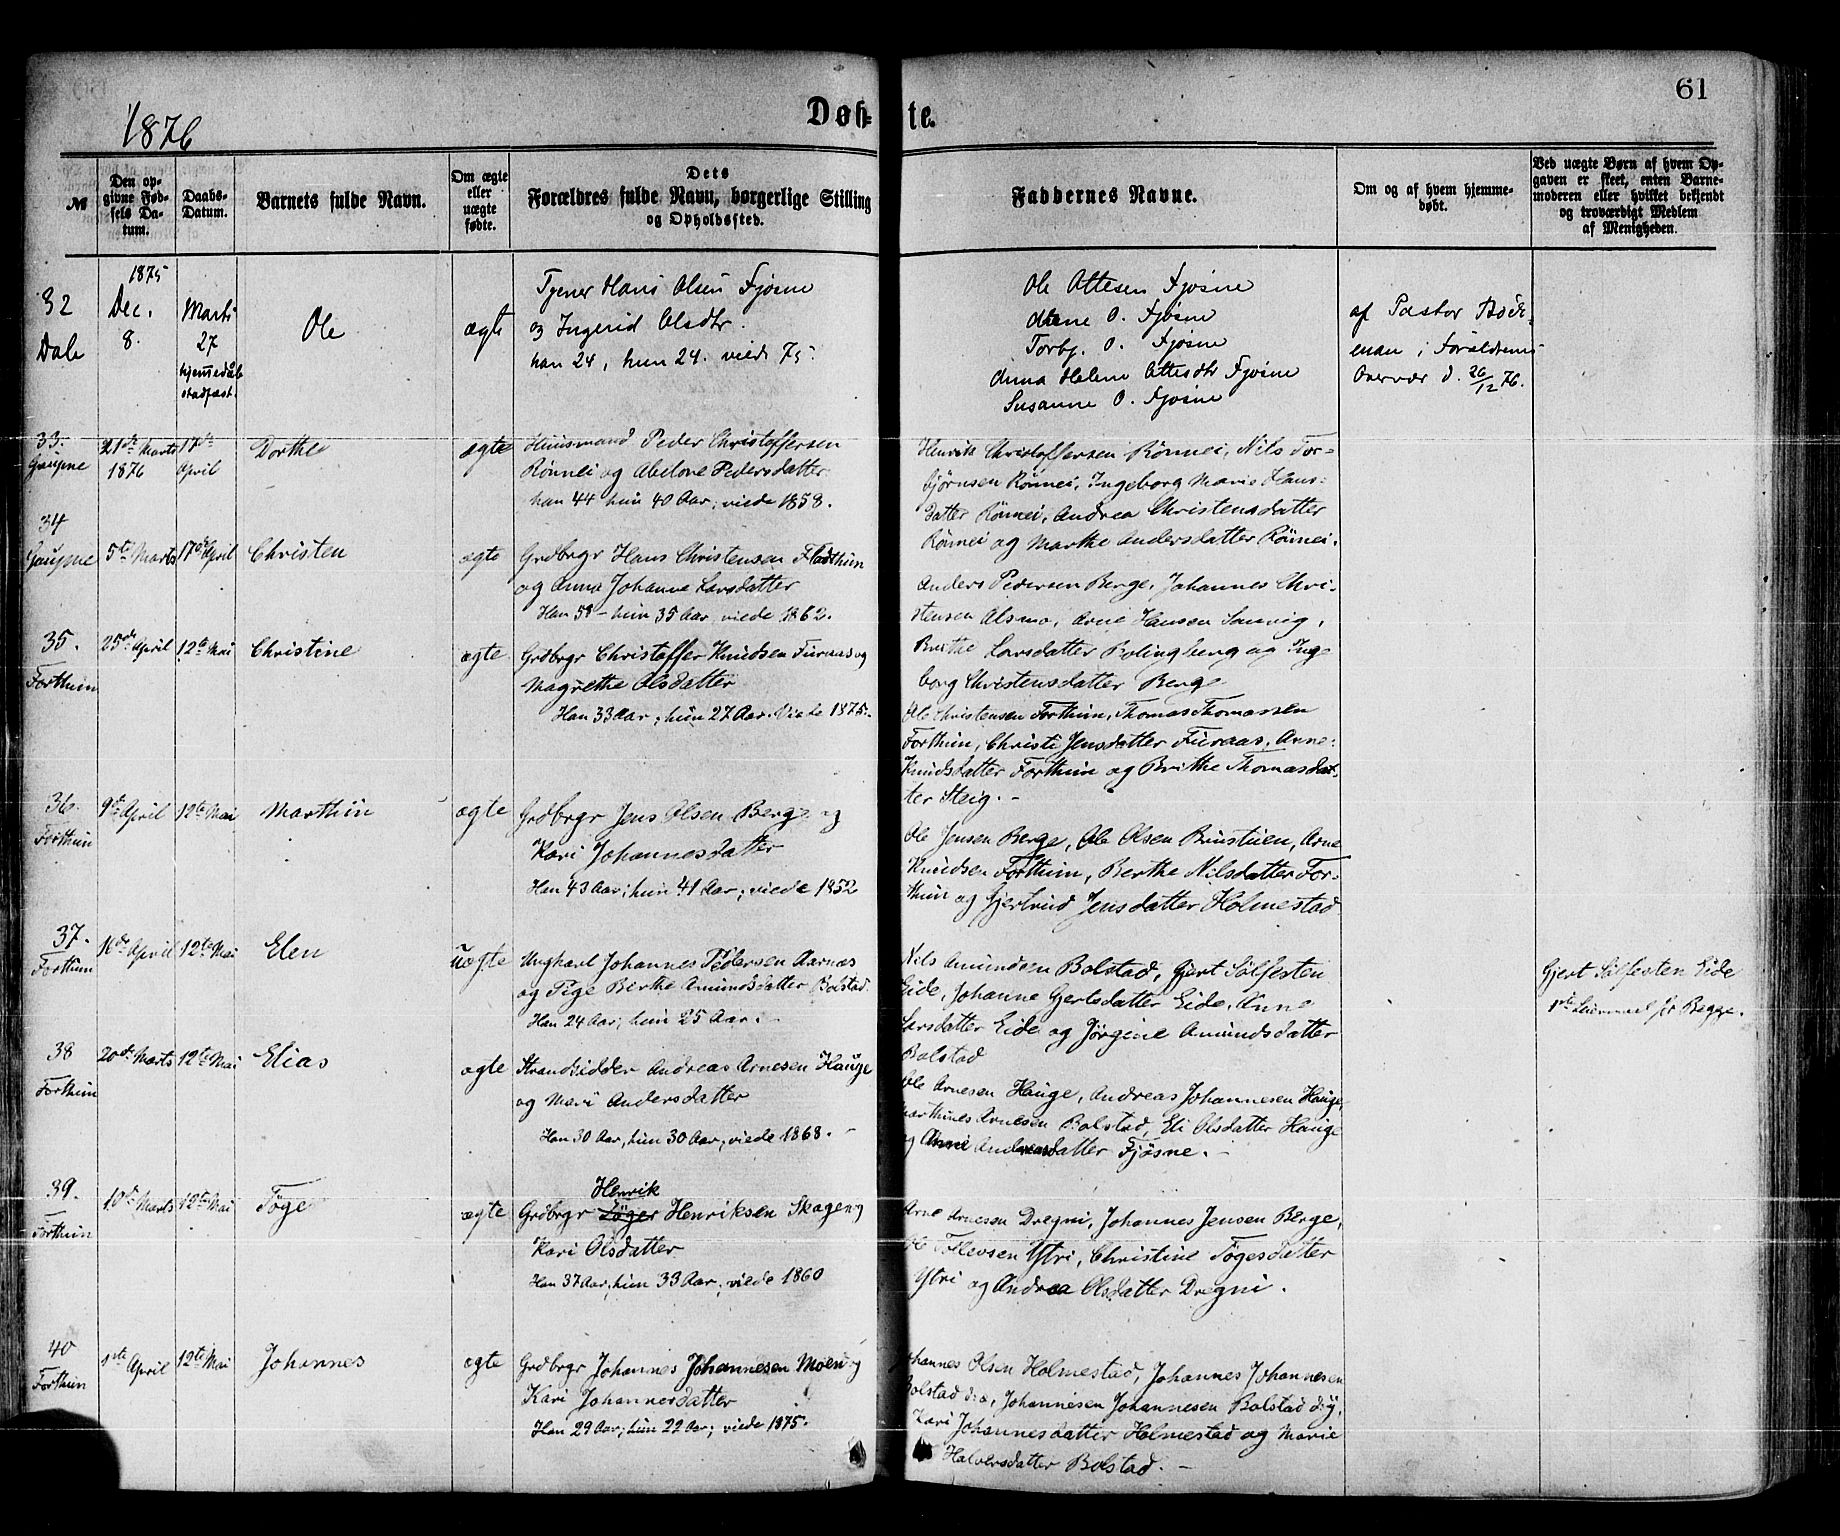 61
1876
Døb- te.
№
Den op-
givne Fød-
sels Da-
tum.
Daabs-
Datum.
Barnets fulde Navn.
Om ægte
eller
uægte
fødte.
Dets
Forældres fulde Navn, borgerlige Stilling
og Opholdssted.
Faddernes Navne.
Om og af hvem hjemme-
døbt.
Ved uægte Børn af hvem Op-
gaven er skeet, enten Barne-
moderen eller hvilket bekjendt
og troværdigt Medlem
af Menigheden.
32
Dale
1875
Dec.
8.
Marts
27
hjemmedåb
stadfæst.
Ole
ægte
Tjener Hans Olsen Fjøsne
og Ingerid Olsdtr.
han 24, hun 24. viede 75.
Ole Ottesen Fjøsne
Anne O. Fjøsne
Torbj. O. Fjøsne
Anna Helene Ottesdtr Fjøsne
Susanne O. Fjøsne
af Pastor
i Forældrenes
Overvær d. 26/12 76.
33.
Gaupne
21de Marts
1876
17de
April
Dorthe
ægte
Huusmand Peder Christoffersen
Rönnei og Abelone Pedersdatter
han 44 hun 40 Aar, viede 1858.
Henrik Christoffersen Rönnei, Nils Tor-
bjørnsen Rönnei, Ingeborg Marie Hans-
datter Rönnei, Andrea Christensdatter
Rönnei og Marthe Andersdatter Rönnei.
34
Gaupne
5te Marts
17de April
Christen
ægte
Grdbrgr Hans Christensen Fladthun
og Anna Johanne Larsdatter
Han 58 – hun 35 Aar, viede 1862.
Anders Pedersen Berge, Johannes Chri-
stensen Alsmo, Arne Hansen Sansvig,
Brithe Larsdatter Bolingberg og Inge
borg Christensdatter Berge
35.
Forthun
25de April
12te Mai
Christine
ægte
Grdbrgr Christoffer Knudsen Furaas og
Magrethe Olsdatter
Han 33 Aar, hun 27 Aar. Viede 1875.
Ole Christensen Forthun, Thomas Thomassen
Forthun, Christi Jensdatter Furaas, Anne
Knudsdatter Forthun og Brithe Thomasdat-
ter Steig. –
36.
Forthun
9de April
12te Mai
Marthin
ægte
Grdbrgr Jens Olsen Berge og
Kari Johannesdatter
Han 43 Aar, hun 41 Aar, viede 1852
Ole Jensen Berge, Ole Olsen Brustuen, Arne
Knudsen Forthun, Berthe Nilsdatter For-
thun og Gjertrud Jensdatter Holmestad
37.
Forthun
16de April
12te Mai
Elen
uægte
Ungkarl Johannes Pedersen Aarnæs
og Pige Birthe Amundsdatter Bolstad.
Han 24 Aar, hun 25 Aar. –
Nils Amundsen Bolstad, Gjert Sølfesten
Eide, Johanne Gjertsdatter Eide, Anne
Larsdatter Eide og Jörgine Amundsdatter
Bolstad
Gjert Sølfesten Eide
1ste Leiermaal for Begge.
38
Forthun
20de Marts
12te Mai
Elias
ægte
Strandsidder Andreas Arnesen Hauge
og Mari Andersdatter
Han 30 Aar, hun 30 Aar, viede 1868. –
Ole Arnesen Hauge, Andreas Johannesen Hauge,
Marthines Arnesen Bolstad, Eli Olsdatter Hauge
og Anne Andreasdatter Fjøsne. –
39.
Forthun
10de Marts
12te Mai
Tøge
ægte
Henrik
Grdbrgr Töger Henriksen Skagen og
Kari Olsdatter
Han 37 Aar, hun 33 Aar, viede 1860
Arne Arnesen Dregni, Johannes Jensen Berge,
Ole Tollevsen Ytri, Christine Tøgesdatter
Ytri og Andrea Olsdatter Dregni.
40
Forthun
1ste April
12te Mai
Johannes
ægte
Grdbrgr Johannes Johannesen Moen og
Kari Johannesdatter
Han 29 Aar, hun 22 Aar, viede 1875.
Johannes Olsen Holmestad, Johannes Johannesen
Bolstad Johannesen Johannesen Bolstad
Kari Johannesdatter Holmestad og Marie
Halvorsdatter Bolstad. –